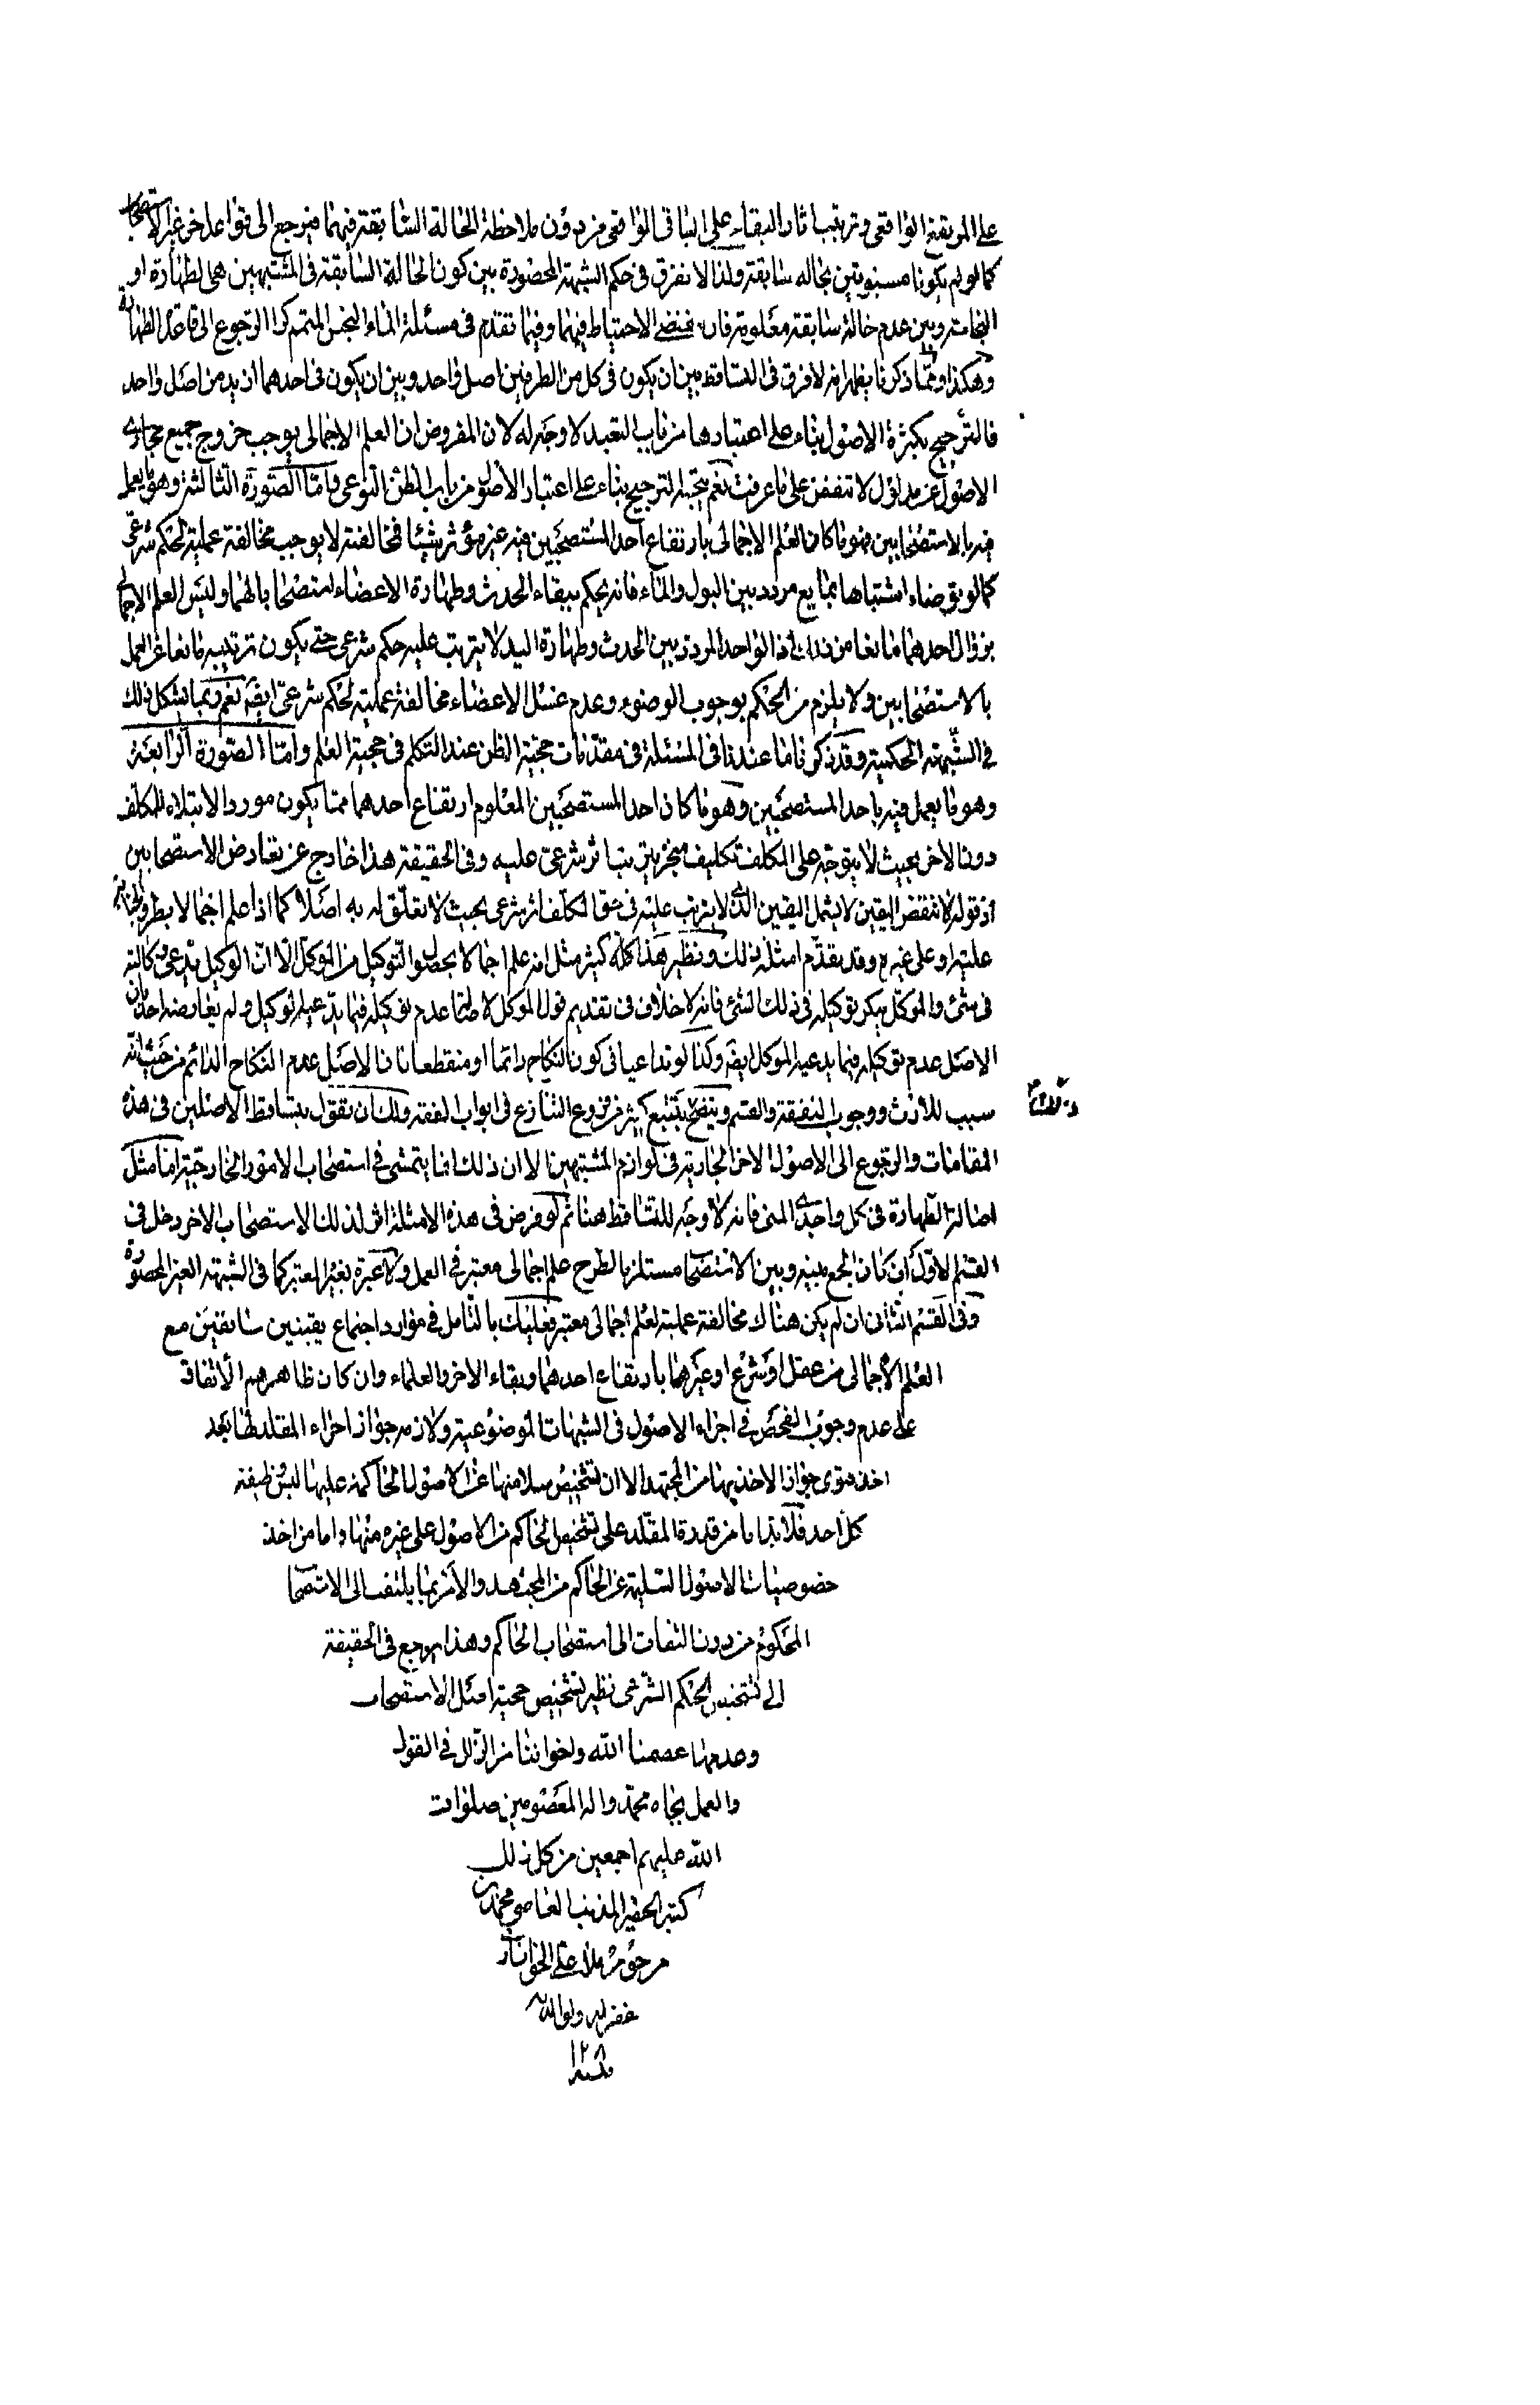 على المرتفع الواقعى وترتيب اثار البقاء على الباقى الواقعى من دون ملاحظة الحالة السابقة فيهما فيرجع الى قواعد اخر غير الاستصحاب
كما لو لم يكونا مسبوقين بحاله سابقة ولذا لا نفرق فى حكم الشبهة المحصورة بين كون الحالة السابقة فى المشتبهين هى الطهارة او
النجاسة وبين عدم حالة سابقة معلومة فان مقتضى الاحتياط فيهما وفيما تقدم فى مسئلة الماء النجس المتمم كرا الرجوع الى قاعدة الطهارة
وهكذا ومما ذكرنا يظهر انه لا فرق فى التساقط بين ان يكون فى كل من الطرفين اصل واحد وبين ان يكون فى احدهما ازيد من اصل واحد
فالترجيح بكثرة الاصول بناء على اعتبارها من باب التعبد لا وجه له لان المفروض ان العلم الاجمالى يوجب خروج جميع مجارى
الاصول عن مدلول لا تنقض على ما عرفت نعم يتجه الترجيح بناء على اعتبار الاصول من باب الظن النوعى واما الصورة الثالثة وهو ما يعمل
فيه بالاستصحابين فهو ما كان العلم الاجمالى بارتفاع احد المستصحبين فيه غير مؤثر شيئا فمخالفته لا يوجب مخالفة عملية لحكم شرعى
كما لو توضاء اشتباها بمايع مردد بين البول والماء فانه يحكم ببقاء الحدث وطهارة الاعضاء استصحابا لهما وليس العلم الاجمالى
بزوال احدهما مانعا من ذلك اذ الواحد المردد بين الحدث وطهارة اليد لا يترتب عليه حكم شرعى حتى يكون ترتيبه مانعا عن العمل
بالاستصحابين ولا يلزم من الحكم بوجوب الوضوء وعدم غسل الاعضاء مخالفة عملية لحكم شرعى ايضه نعم ربما يشكل ذلك
فى الشبهة الحكمية وقد ذكرنا ما عندنا فى المسئلة فى مقدمات حجية الظن عند التكلم فى حجية العلم واما الصورة الرابعة
وهو ما يعمل فيه باحد المستصحبين وهو ما كان احد المستصحبين المعلوم ارتفاع احدهما مما يكون موردا لابتلاء المكلف
دون الاخر بحيث لا يتوجه على المكلف تكليف منجز يترتب اثر شرعى عليه وفى الحقيقة هذا خارج عن تعارض الاستصحابين
اذ قوله لا تنقض اليقين لا يشمل اليقين الذى لا يترتب عليه فى حق المكلف اثر شرعى بحيث لا تعلق له به اصلا كما اذا علم اجمالا بطرو الجنابة
عليه او على غيره وقد تقدم امثلة ذلك ونظير هذا كله كثير مثل انه علم اجمالا بحصول التوكيل من الموكل الا ان الوكيل يدعى وكالته
فى شئ والموكل ينكر توكيله فى ذلك الشئ فانه لا خلاف فى تقديم قول الموكل لاصالة عدم توكيله فيما يدعيه الوكيل ولم يعارضه احد بان
الاصل عدم توكيله فيما يدعيه الموكل ايضه وكذا لو تداعيا فى كون النكاح دائما او منقطعا فان الاصل عدم النكاح الدائم من حيث انه
سبب للارث ووجوب النفقة والقسم ويتضح بتتبع كثير من فروع التنازع فى ابواب الفقه ولك ان تقول بتساقط الاصلين فى هذه
المقامات والرجوع الى الاصول الاخر الجارية فى لوازم المشتبهين الا ان ذلك انما يتمشى فى استصحاب الامور الخارجية اما مثل
اصالة الطهارة فى كل واجدى المنى فانه لا وجه للتساقط هنا ثم لو فرض فى هذه الامثلة اثر لذلك الاستصحاب الاخر دخل فى
القسم الاول ان كان الجمع بينه وبين الاستصحاب مستلزما لطرح علم اجمالى معتبر فى العمل ولا عبرة بغير المعتبر كما فى الشبهة الغير المحصورة
وفى القسم الثانى ان لم يكن هناك مخالفة عملية لعلم اجمالى معتبر فعليك بالتأمل فى موارد اجتماع يقينين سابقين مع
العلم الاجمالى من عقل او شرع او غيرهما بارتفاع احدهما وبقاء الاخر والعلماء وان كان ظاهرهم الاتفاق
على عدم وجوب الفحص فى اجراء الاصول فى الشبهات الموضوعية ولازمه جواز اجراء المقلد لها بعد
اخذ فتوى جواز الاخذ بها من المجتهد الا ان تشخيص سلامتها عن الاصول الحاكمة عليها ليس وظيفة
كل احد فلا بد اما من قدرة المقلد على تشخيص الحاكم من الاصول على غيره منها واما من اخذ
خصوصيات الاصول السليمة عن الحاكم من المجتهد والا فربما يلتفت الى الاستصحاب
المحكوم من دون التفات الى استصحاب الحاكم وهذا يرجع فى الحقيقة
الى تشخيص الحكم الشرعى نظير تشخيص حجية اصل الاستصحاب
وعدمها عصمنا الله واخواننا من الزلل فى القول
والعمل بجاه محمد واله المعصومين صلوات
الله عليهم اجمعين من كل ذلك
كتبه الحقير المذنب العاصى محمد بن
مرحوم ملا على الخوانسارى
غفر له ولوالديه
سنة ١٢٨